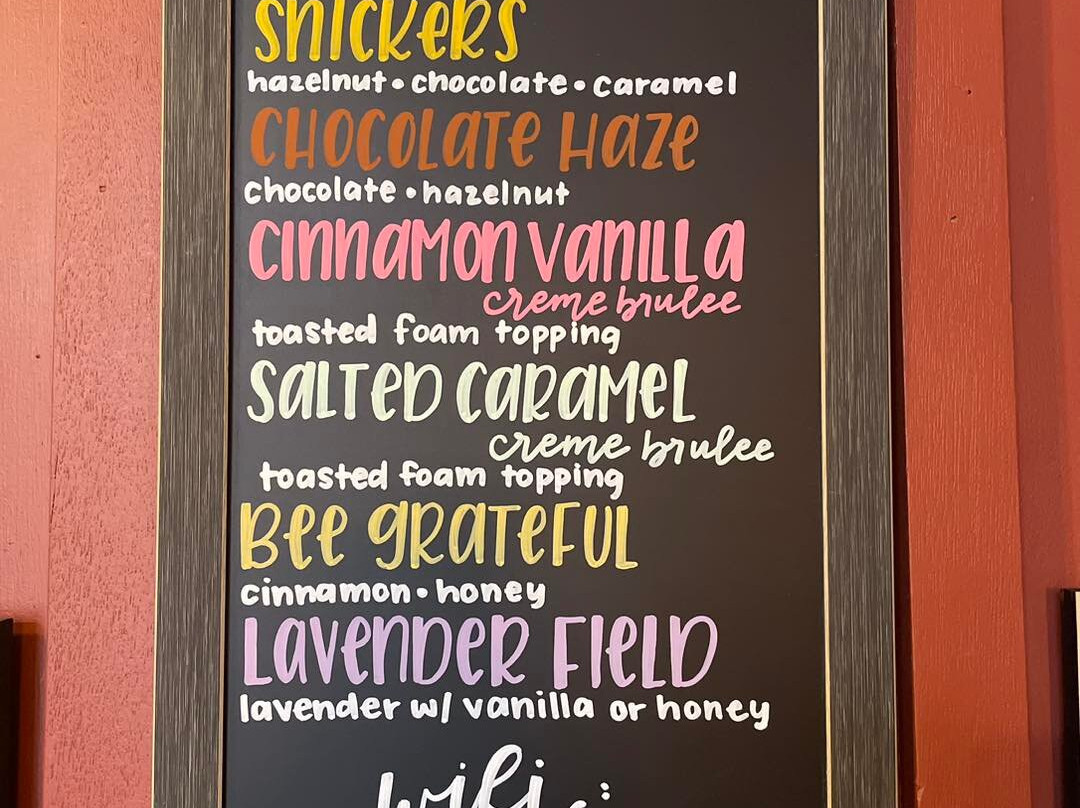 SNICKERS
hazelnut • chocolate • caramel
CHOCOLATE HAZE
chocolate • hazelnut
CINNAMON VANILLA
creme brulee
toasted foam topping
SALTED CARAMEL
creme brulee
toasted foam topping
BEE GRATEFUL
cinnamon • honey
LAVENDER FIELD
lavender w/ vanilla or honey
wifi: